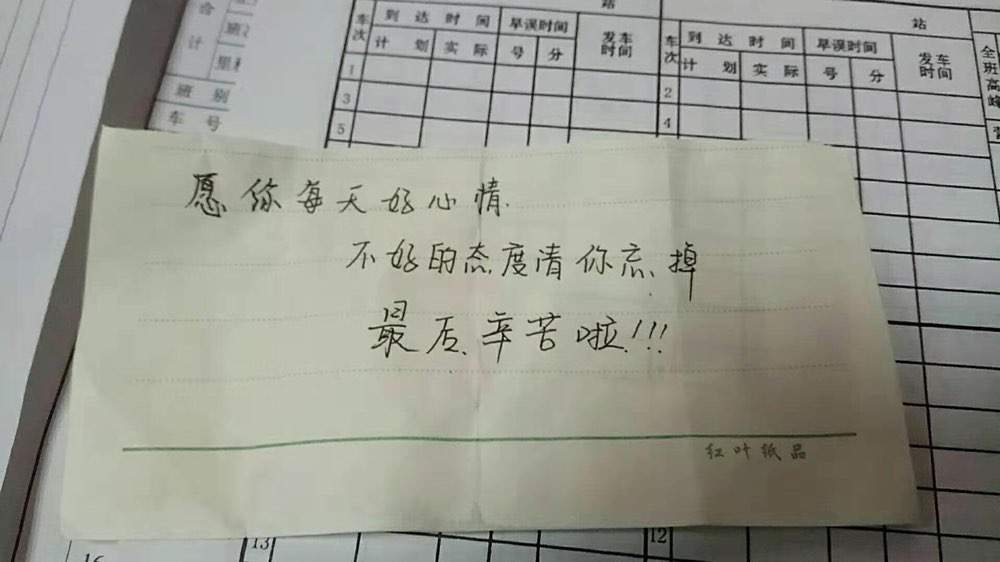 站
站
合
计
班
里程
班 别
车 号
车次
到 达 时 间
早误时间
发车时间
计 划
实 际
号
分
车次
到 达 时 间
早误时间
发车时间
计 划
实 际
号
分
全班高峰
1
2
3
4
5
愿你每天好心情.
不好的态度清你忘掉
最后、辛苦啦!!!
红叶纸品
13
12
16